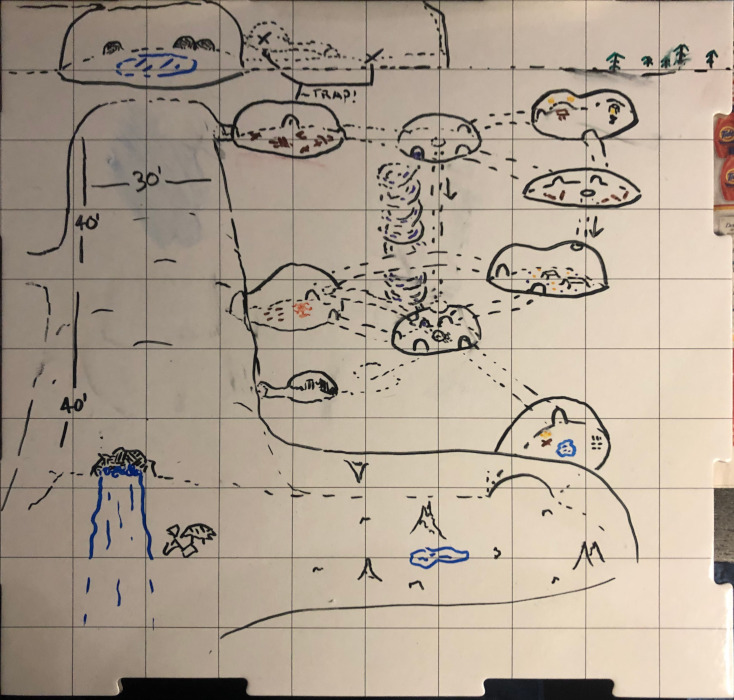 40'
40'
30'
TRAP!